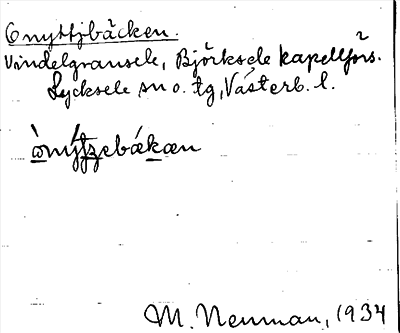 Onyttjbäcken.
Vindelgransele, Björksele kapellförs.
Lycksele sn o. tg, Västerb. l.
M. Neuman, 1934